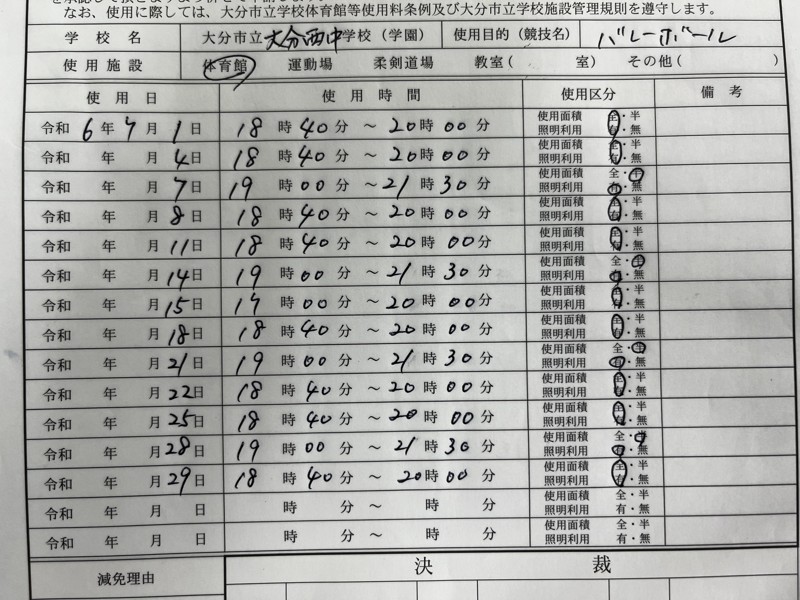 なお、使用に際しては、大分市立学校体育館等使用料条例及び大分市立学校施設管理規則を遵守します。
学校名 大分市立大分西中学校(学園) 使用目的(競技名) バレーボール
使用施設 体育館 運動場 柔剣道場 教室( 室) その他( )
使用日 使用時間 使用区分 備考
令和6年7月1日 18時40分~20時00分 使用面積 全・半
照明利用 有・無
令和 年 月4日 18時40分~20時00分 使用面積 全・半
照明利用 有・無
令和 年 月7日 19時00分~21時30分 使用面積 全・半
照明利用 有・無
令和 年 月8日 18時40分~20時00分 使用面積 全・半
照明利用 有・無
令和 年 月11日 18時40分~20時00分 使用面積 全・半
照明利用 有・無
令和 年 月14日 19時00分~21時30分 使用面積 全・半
照明利用 有・無
令和 年 月15日 17時00分~20時00分 使用面積 全・半
照明利用 有・無
令和 年 月18日 18時40分~20時00分 使用面積 全・半
照明利用 有・無
令和 年 月21日 19時00分~21時30分 使用面積 全・半
照明利用 有・無
令和 年 月22日 18時40分~20時00分 使用面積 全・半
照明利用 有・無
令和 年 月25日 18時40分~20時00分 使用面積 全・半
照明利用 有・無
令和 年 月28日 19時00分~21時30分 使用面積 全・半
照明利用 有・無
令和 年 月29日 18時40分~20時00分 使用面積 全・半
照明利用 有・無
令和 年 月 日 時 分~ 時 分 使用面積 全・半
照明利用 有・無
令和 年 月 日 時 分~ 時 分 使用面積 全・半
照明利用 有・無
減免理由 決裁